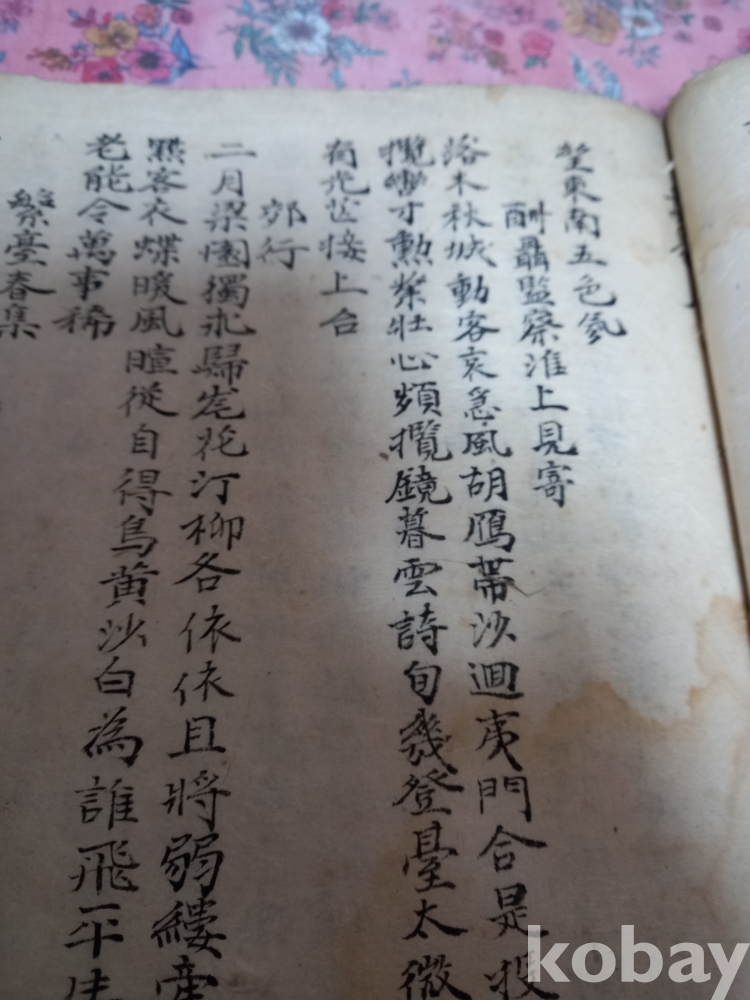 望東南五色氛
酬聶監察淮上見寄
落木秋城動客哀急風胡鴈帶沙迴夷門合是投
攬轡才勲業壯心頻攬鏡暮雲詩句幾登臺太微
有光芒接上台
郊行
二月梁園獨未歸岸花汀柳各依依且將弱縷牽
㸃客衣蝶暖風暄從自得鳥黄沙白為誰飛平生
老能令萬事稀
繁臺春集
kobay